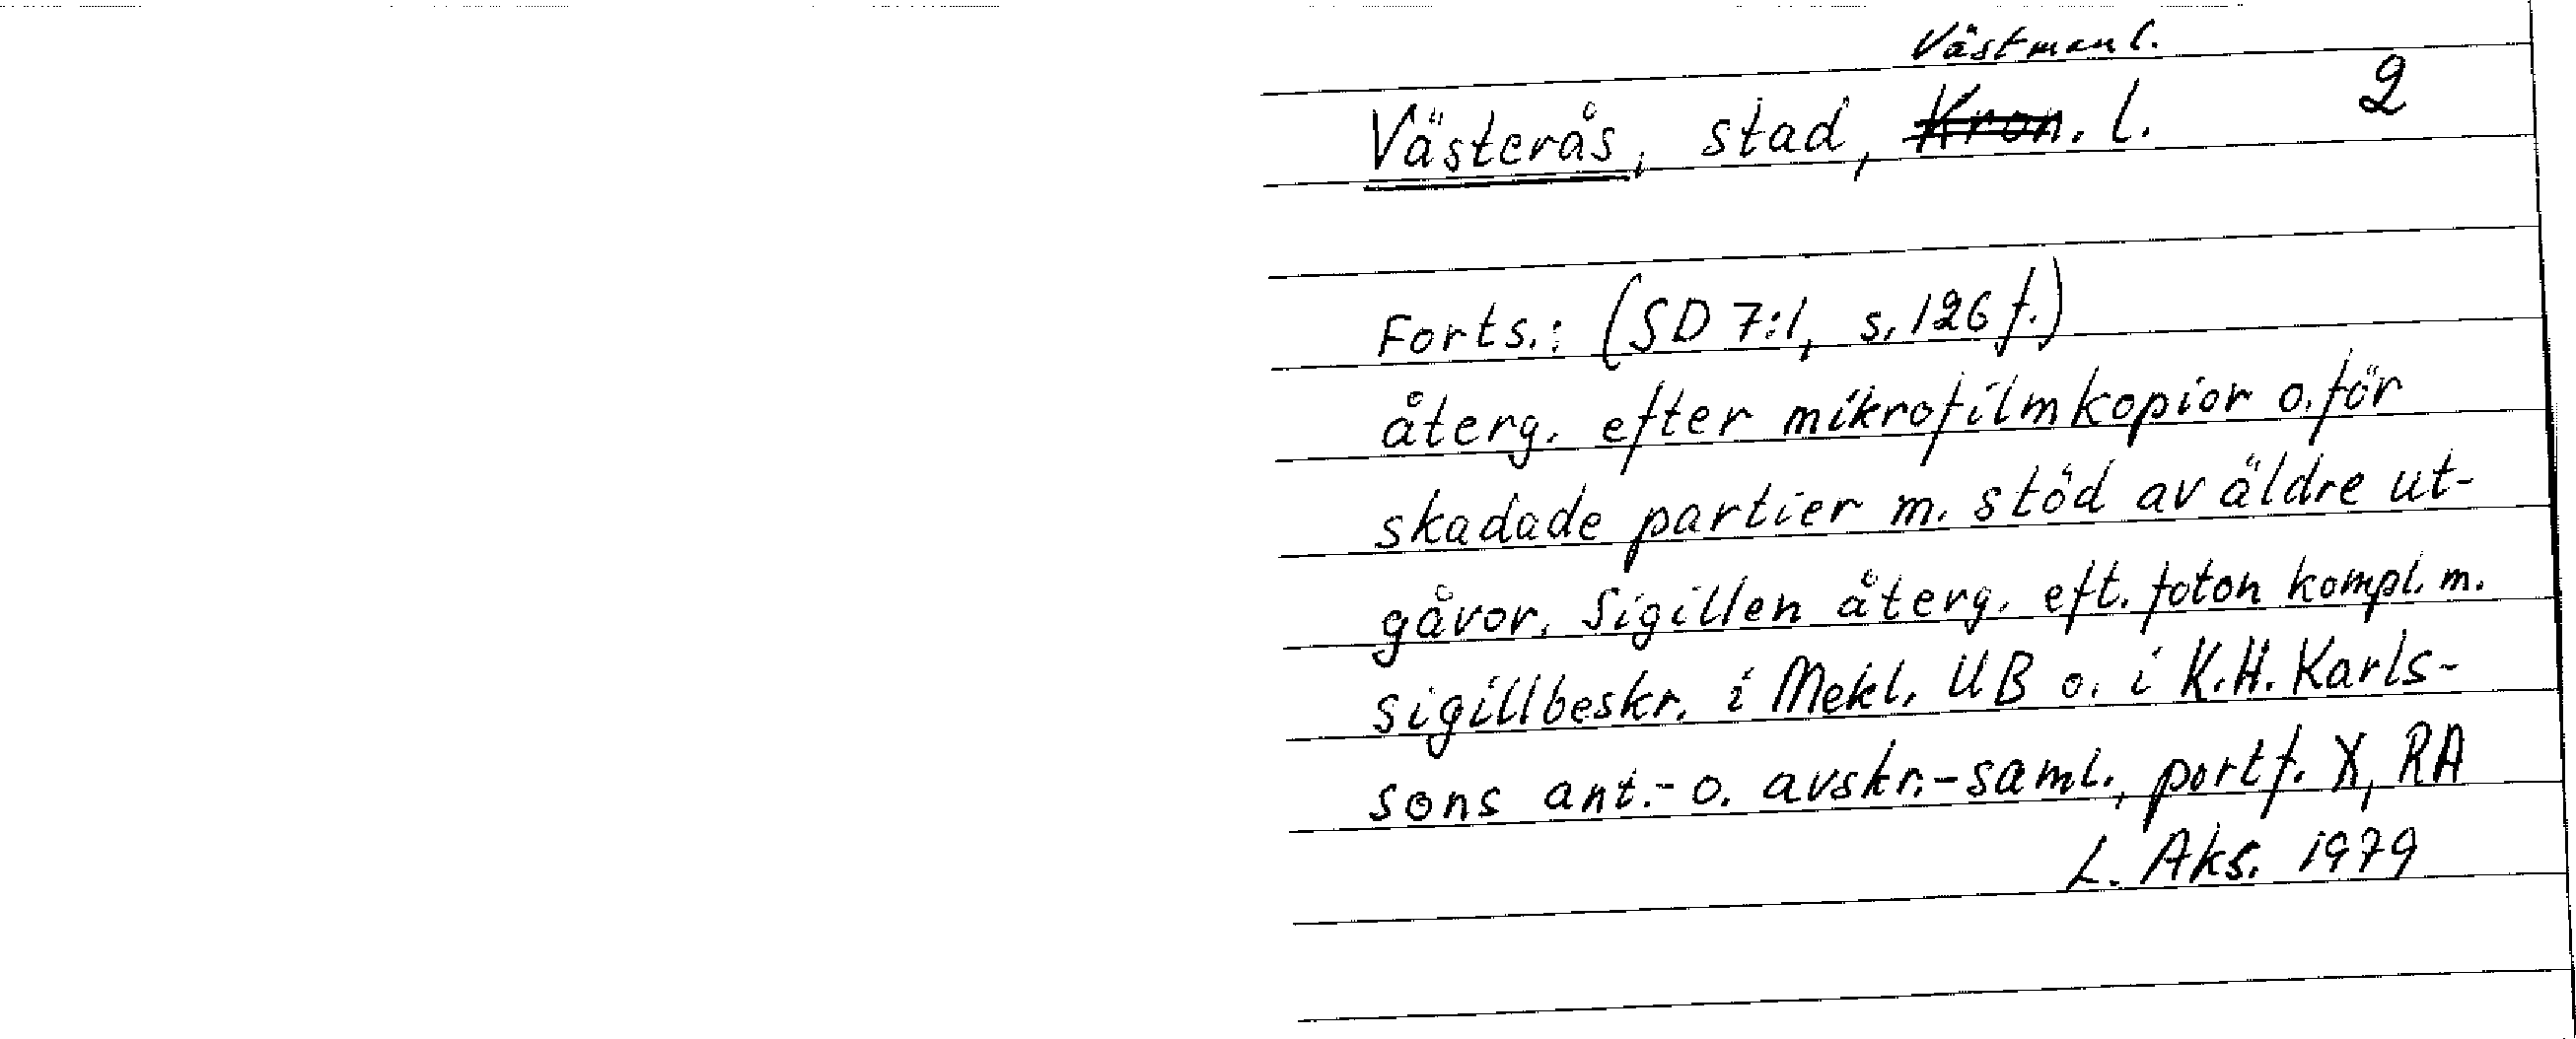 Västmanl.
Västerås, stad, Kron. l. 2
Forts.: (SD 7:1, s. 126 f.)
återg. efter mikrofilmkopior o. för
skadade partier m. stöd av äldre ut-
gåvor. Sigillen återg. eft. foton kompl. m.
sigillbeskr. i Mekl. UB o. i K.H. Karls-
sons ant.- o. avskr.-saml., portf. X, RA
L. Aks. 1979